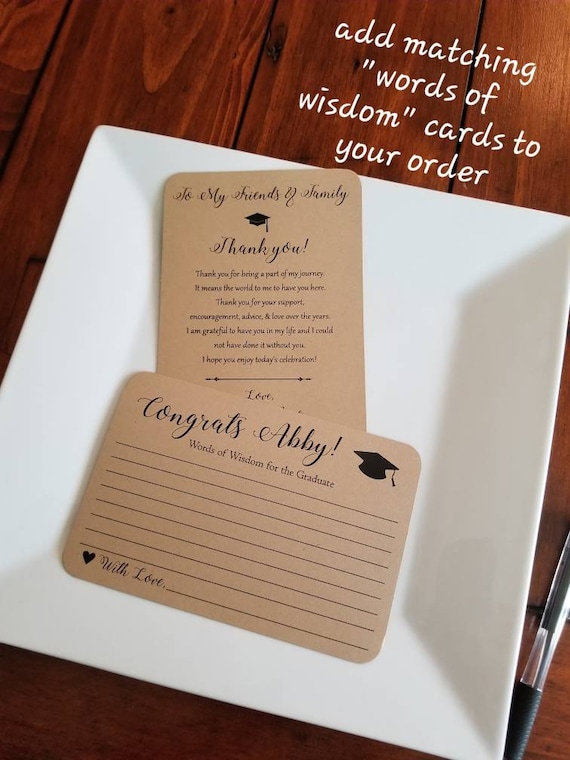 add matching
"words of
wisdom" cards to
your order
To My Friends & Family
Thank you!
Thank you for being a part of my journey.
It means the world to me to have you here.
Thank you for your support,
encouragement, advice, & love over the years.
I am grateful to have you in my life and I could
not have done it without you.
I hope you enjoy today's celebration!
Love,
Congrats Abby!
Words of Wisdom for the Graduate
With Love,